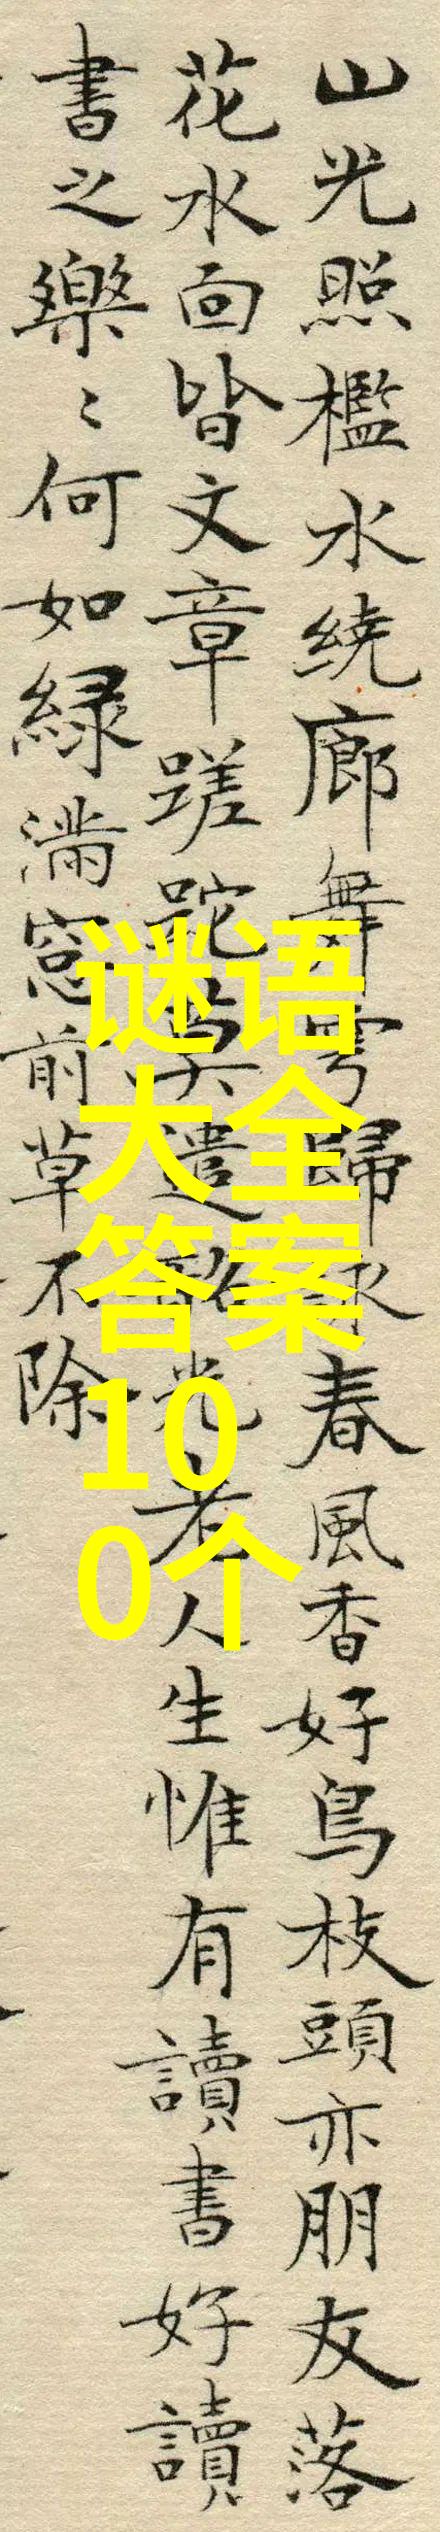 山光照檻水繞廊舞雩歸詠春風香好鳥枝頭亦朋友落
花水面皆文章蹉跎莫遣韶光老人生惟有讀書好讀
書之樂〻何如緑滿窓前草不除
谜语
大全
答案
10
0个